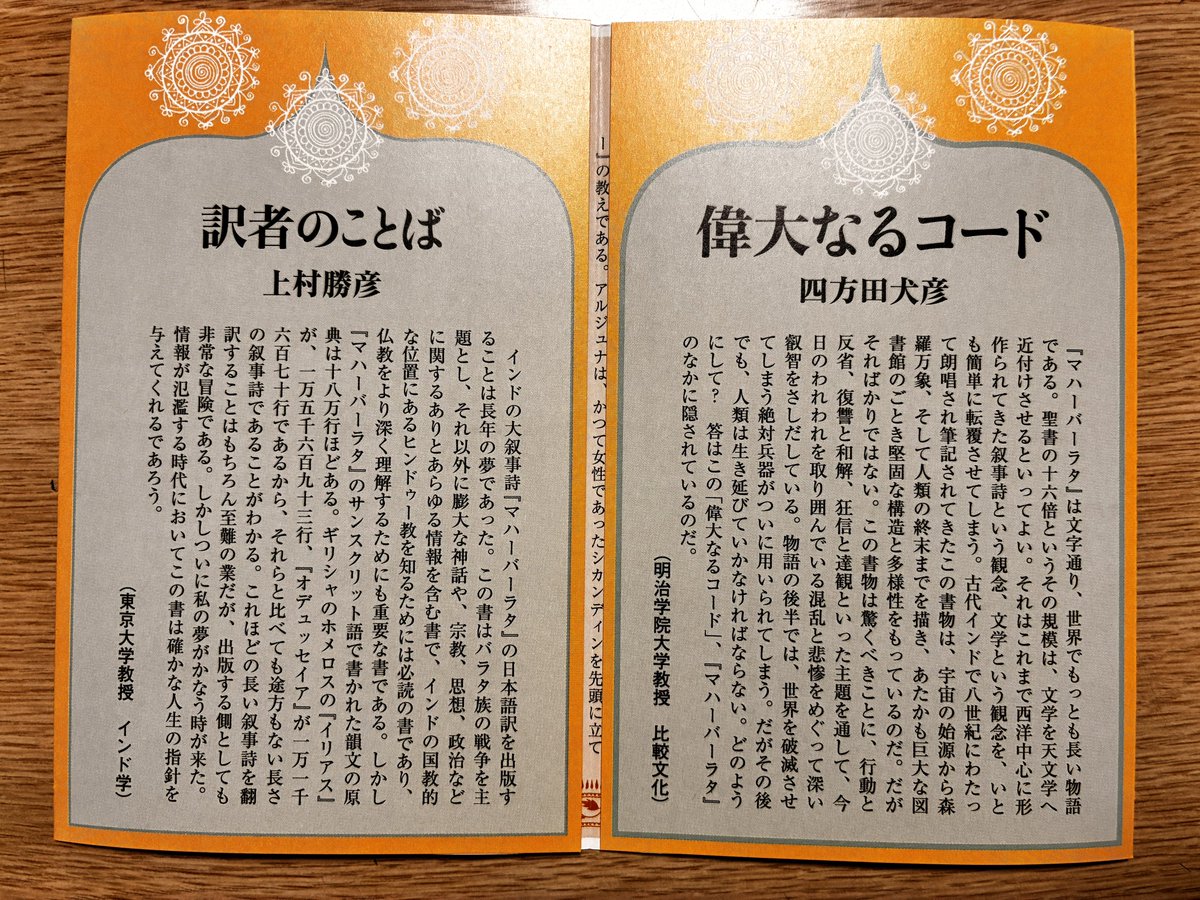 偉大なるコード
四方田犬彦
『マハーバーラタ』は文字通り、世界でもっとも長い物語
である。聖書の十六倍というその規模は、文学を天文学へ
近付けさせるといってよい。それはこれまで西洋中心に形
作られてきた叙事詩という観念、文学という観念を、いと
も簡単に転覆させてしまう。古代インドで八世紀にわたっ
て朗唱され筆記されてきたこの書物は、宇宙の始源から森
羅万象、そして人類の終末までを描き、あたかも巨大な図
書館のごとき堅固な構造と多様性をもっているのだ。だが
そればかりではない。この書物は驚くべきことに、行動と
反省、復讐と和解、狂信と達観といった主題を通して、今
日のわれわれを取り囲んでいる混乱と悲惨をめぐって深い
叡智をさしだしている。物語の後半では、世界を破滅させ
てしまう絶対兵器がついに用いられてしまう。だがその後
でも、人類は生き延びていかなければならない。どのよう
にして? 答はこの「偉大なるコード」、『マハーバーラタ』
のなかに隠されているのだ。
(明治学院大学教授 比較文化)
ー』の教えである。アルジュナは、かつて女性であったシカンディンを先頭に立て
訳者のことば
上村勝彦
インドの大叙事詩『マハーバーラタ』の日本語訳を出版す
ることは長年の夢であった。この書はバラタ族の戦争を主
題とし、それ以外に膨大な神話や、宗教、思想、政治など
に関するありとあらゆる情報を含む書で、インドの国教的
な位置にあるヒンドゥー教を知るためには必読の書であり、
仏教をより深く理解するためにも重要な書である。しかし
『マハーバーラタ』のサンスクリット語で書かれた韻文の原
典は十八万行ほどある。ギリシャのホメロスの『イリアス』
が、一万五千六百九十三行、『オデュッセイア』が一万一千
六百七十行であるから、それらと比べても途方もない長さ
の叙事詩であることがわかる。これほどの長い叙事詩を翻
訳することはもちろん至難の業だが、出版する側としても
非常な冒険である。しかしついに私の夢がかなう時が来た。
情報が氾濫する時代においてこの書は確かな人生の指針を
与えてくれるであろう。
(東京大学教授 インド学)